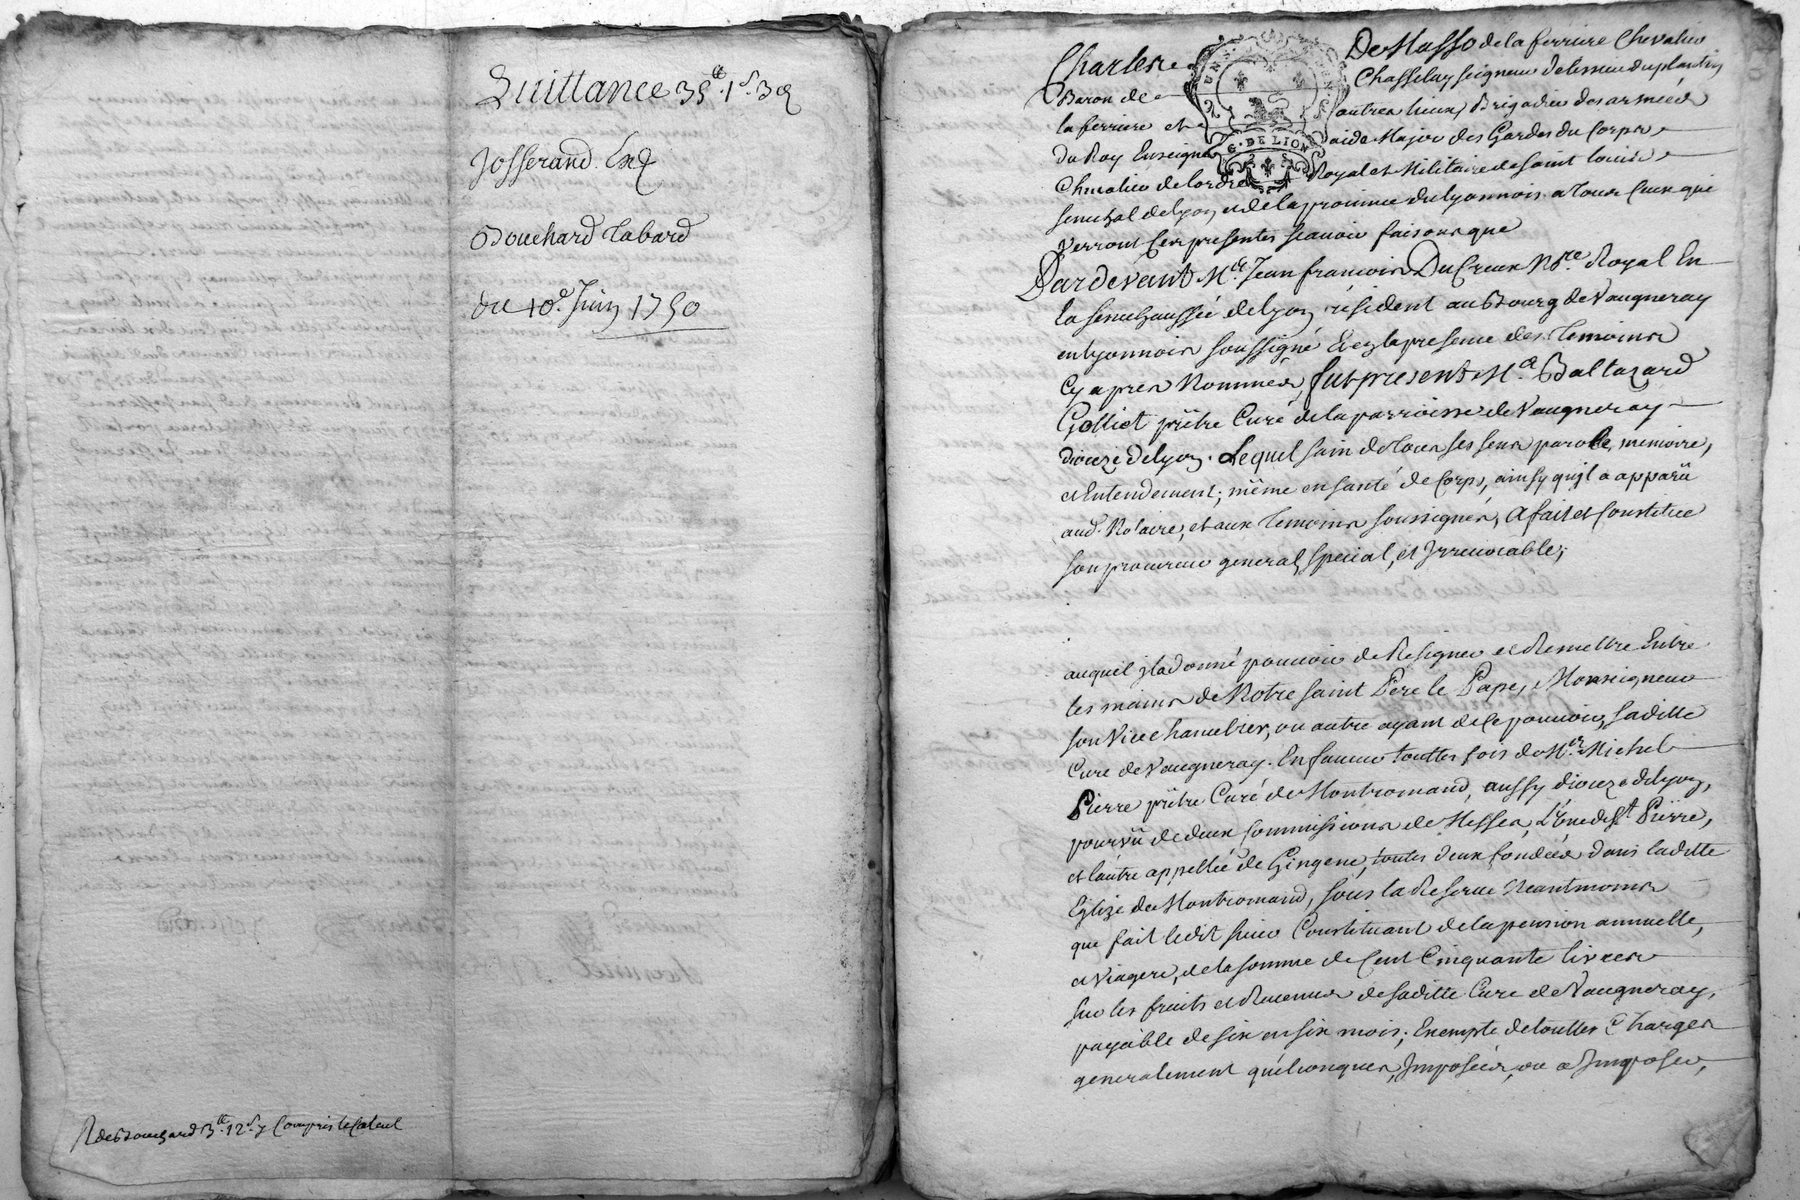 Quittance 35 lt. 1 s. 3 d
Josserand Exq
Bouchard Tabard
du 10e. Juin 1750
R de Bouchard 3 lt. 12 s. y Compris le Calcul
Charles DeMasso de la ferriere Chevalier
Baron de Chasselay seigneur de Lissieu du plantin
la ferriere et autres lieux, Brigadier des armées
du Roy Enseigne aide Major des Gardes du Corps
G. DE LION
Chevalier de lordre Royal et Militaire de Saint louis
senechal de lyon, et de la province du lyonnois a tous Ceux qui
verront Ces presentes scavoir faisons que
Pardevant Me. Jean francois DuCreux Nore. Royal En
la senechaussée de lyon, résident au Bourg de Vaugneray
en lyonnois soussigné Et en la presence des Temoins
Cy apres Nommés, fut present Me. Baltazard
Golliot prêtre Curé de la parroisse de Vaugneray
dioceze de lyon. Lequel sain de tous ses sens parole, memoire,
et Entendement, même en santé de Corps, ainsy quil a apparû
aud. Notaire, et aux Temoins soussignés, A fait et Constitue
son procureur general, special, et Irrevocable,
auquel jl a donné pouvoir de Resigner et Remettre Entre
les mains de Notre saint Pere le Pape, Monseigneur
son Vice chancelier, ou autre ayant de Ce pouvoir, sa ditte
Cure de Vaugneray. En faveur touttes fois de Me. Michel
Pierre prêtre Curé de Montromand, aussy dioceze de lyon,
pourvû de deux Commissions de Messes, L'Une de St Pierre,
et lautre appellée de Gingene, toutes deux fondées dans laditte
Eglize de Montromand, sous la Reserve Neantmoins
que fait ledit sieur Constituant de la pension annuelle,
et viagere, de la somme de Cent Cinquante livres
sur les fruits et Revenus de saditte Cure de Vaugneray,
payable de six en six mois, Exempte de touttes Charges
generalement quelconques, Imposées, ou a Imposer,